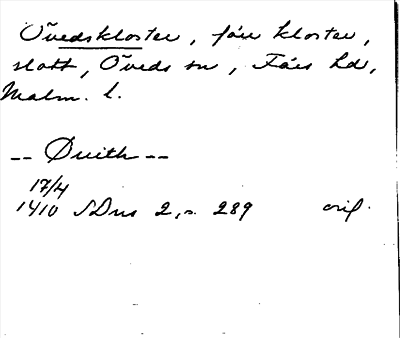 Övedskloster, förr kloster,
slott, Öveds sn, Färs hd,
Malm. l.
-- Øuith --
17/4
1410 SDns 2, s. 289 orig.